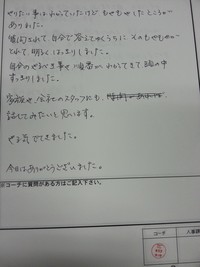 やりたい事はわかっていたけど もやもやしたところが
ありました。
質問されて、自分で答えてゆくうちに そのもやもやが
とれて、明るくはっきりしました。
自分のやるべき事や 順番が わかってきて 胸の中
すっきりしました。
家族や、会社のスタッフにも、
話してみたいと思います。
やる気 でてきました。
今日は ありがとうございました。
※コーチに質問がある方はご記入下さい。
コーチ